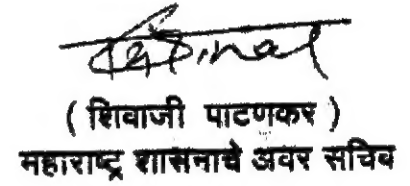 ( शिवाजी पाटणकर )
महाराष्ट्र शासनाचे अवर सचिव